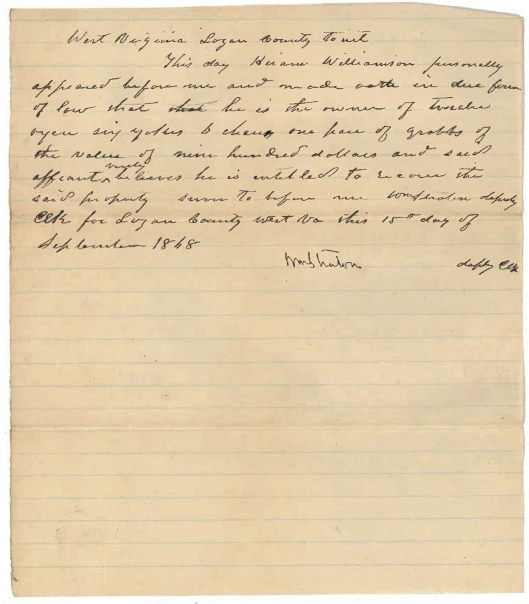 West Virginia Logan County to wit
This day Hiram Williamson personally
appeared before me and made oath in due form
of law that that he is the owner of twelve
oxen six yokes 6 chang one pare of grabbs of
the value of nine hundred dollars and said
affiant verily believes he is intitled to recover the
said property sworn to before me Wm Straton deputy
Clk for Logan County West Va this 15th day of
September 1868
Wm Straton depty Clk